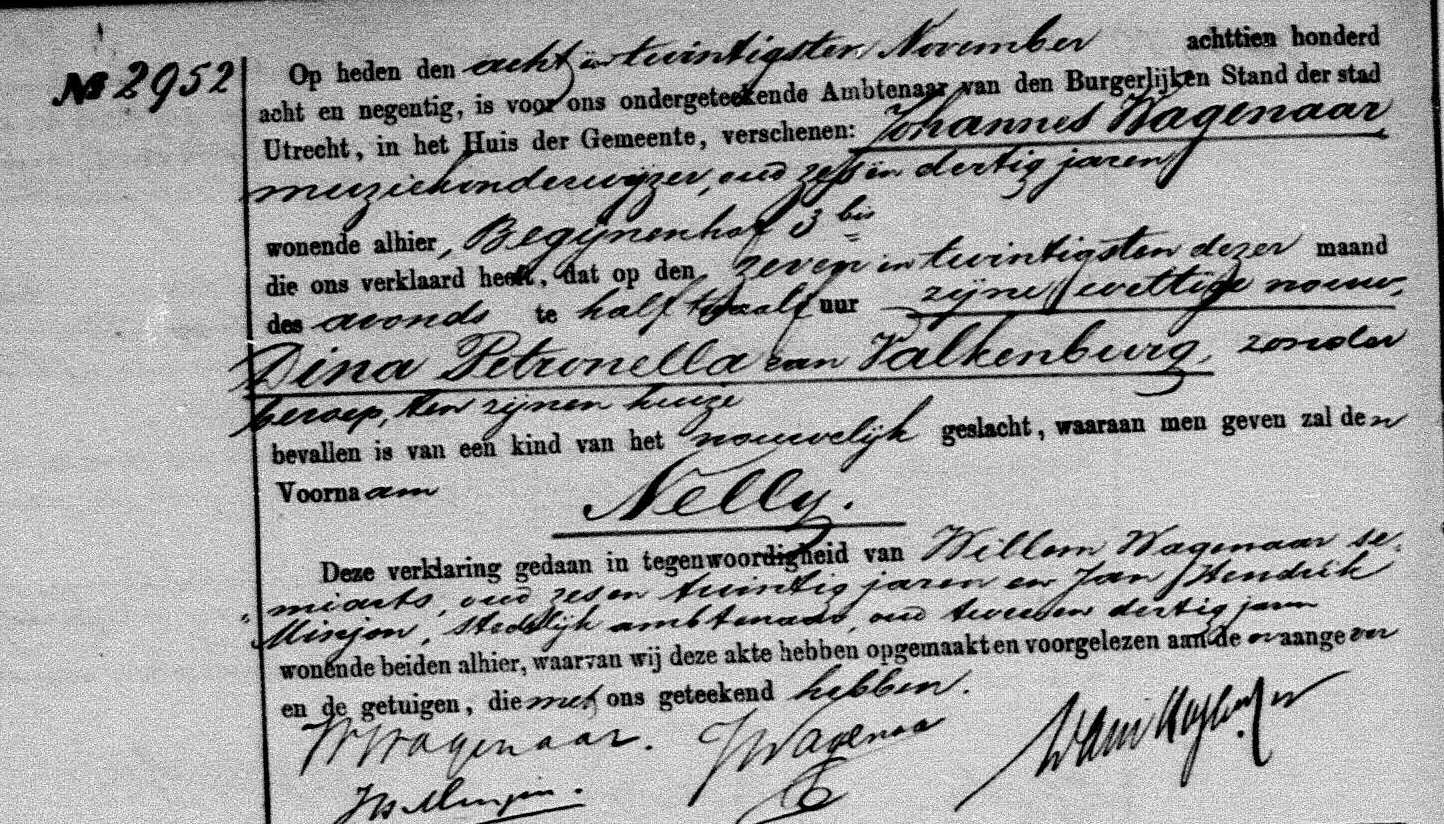 № 2952
Op heden den acht en twintigsten November achttien honderd
acht en negentig, is voor ons ondergeteekende Ambtenaar van den Burgerlijken Stand der stad
Utrecht, in het Huis der Gemeente, verschenen: Johannes Wagenaar
muziekonderwijzer, oud zes en dertig jaren,
wonende alhier, Begijnenhof 3 bis
die ons verklaard heeft, dat op den zeven en twintigsten dezer maand
des avonds te half twaalf uur zijne wettige vrouw,
Dina Petronella van Valkenburg, zonder
beroep, ten zijnen huize
bevallen is van een kind van het vrouwelijk geslacht, waaraan men geven zal den
Voornaam
Nelly.
Deze verklaring gedaan in tegenwoordigheid van Willem Wagenaar se-
miarts, oud zes en twintig jaren en Jan Hendrik
Minjon, stedelijk ambtenaar, oud twee en dertig jaren
wonende beiden alhier, waarvan wij deze akte hebben opgemaakt en voorgelezen aan de aangever
en de getuigen, die met ons geteekend hebben.
W Wagenaar. J Wagenaar
JHs Minjon.